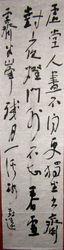 虛堂人靜不聞更獨坐書床
對夜燈門外不知春雪
霽半峯殘月一溪冰